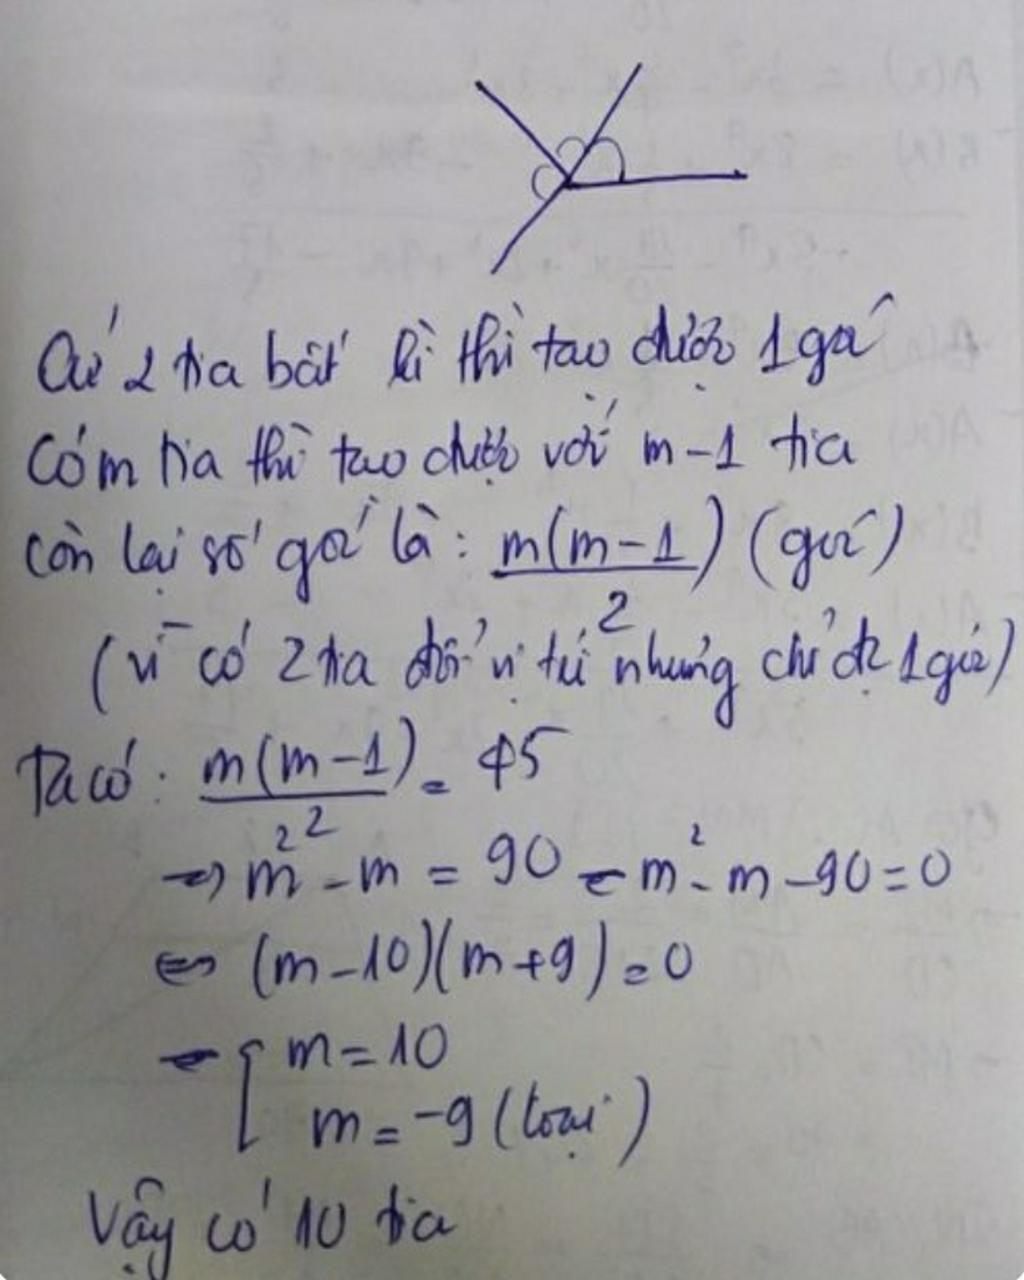 Cứ 2 tia bất kì thì tạo được 1 góc
Có m tia thì tạo được với m-1 tia
còn lại số góc là: m(m-1)/2 (góc)
(vì có 2 tia đổi vị trí nhưng chỉ đc 1 góc)
Ta có: m(m-1)/2 = 45
=> m² - m = 90 <=> m² - m - 90 = 0
<=> (m-10)(m+9) = 0
<=> [ m = 10
m = -9 (loại)
Vậy có 10 tia